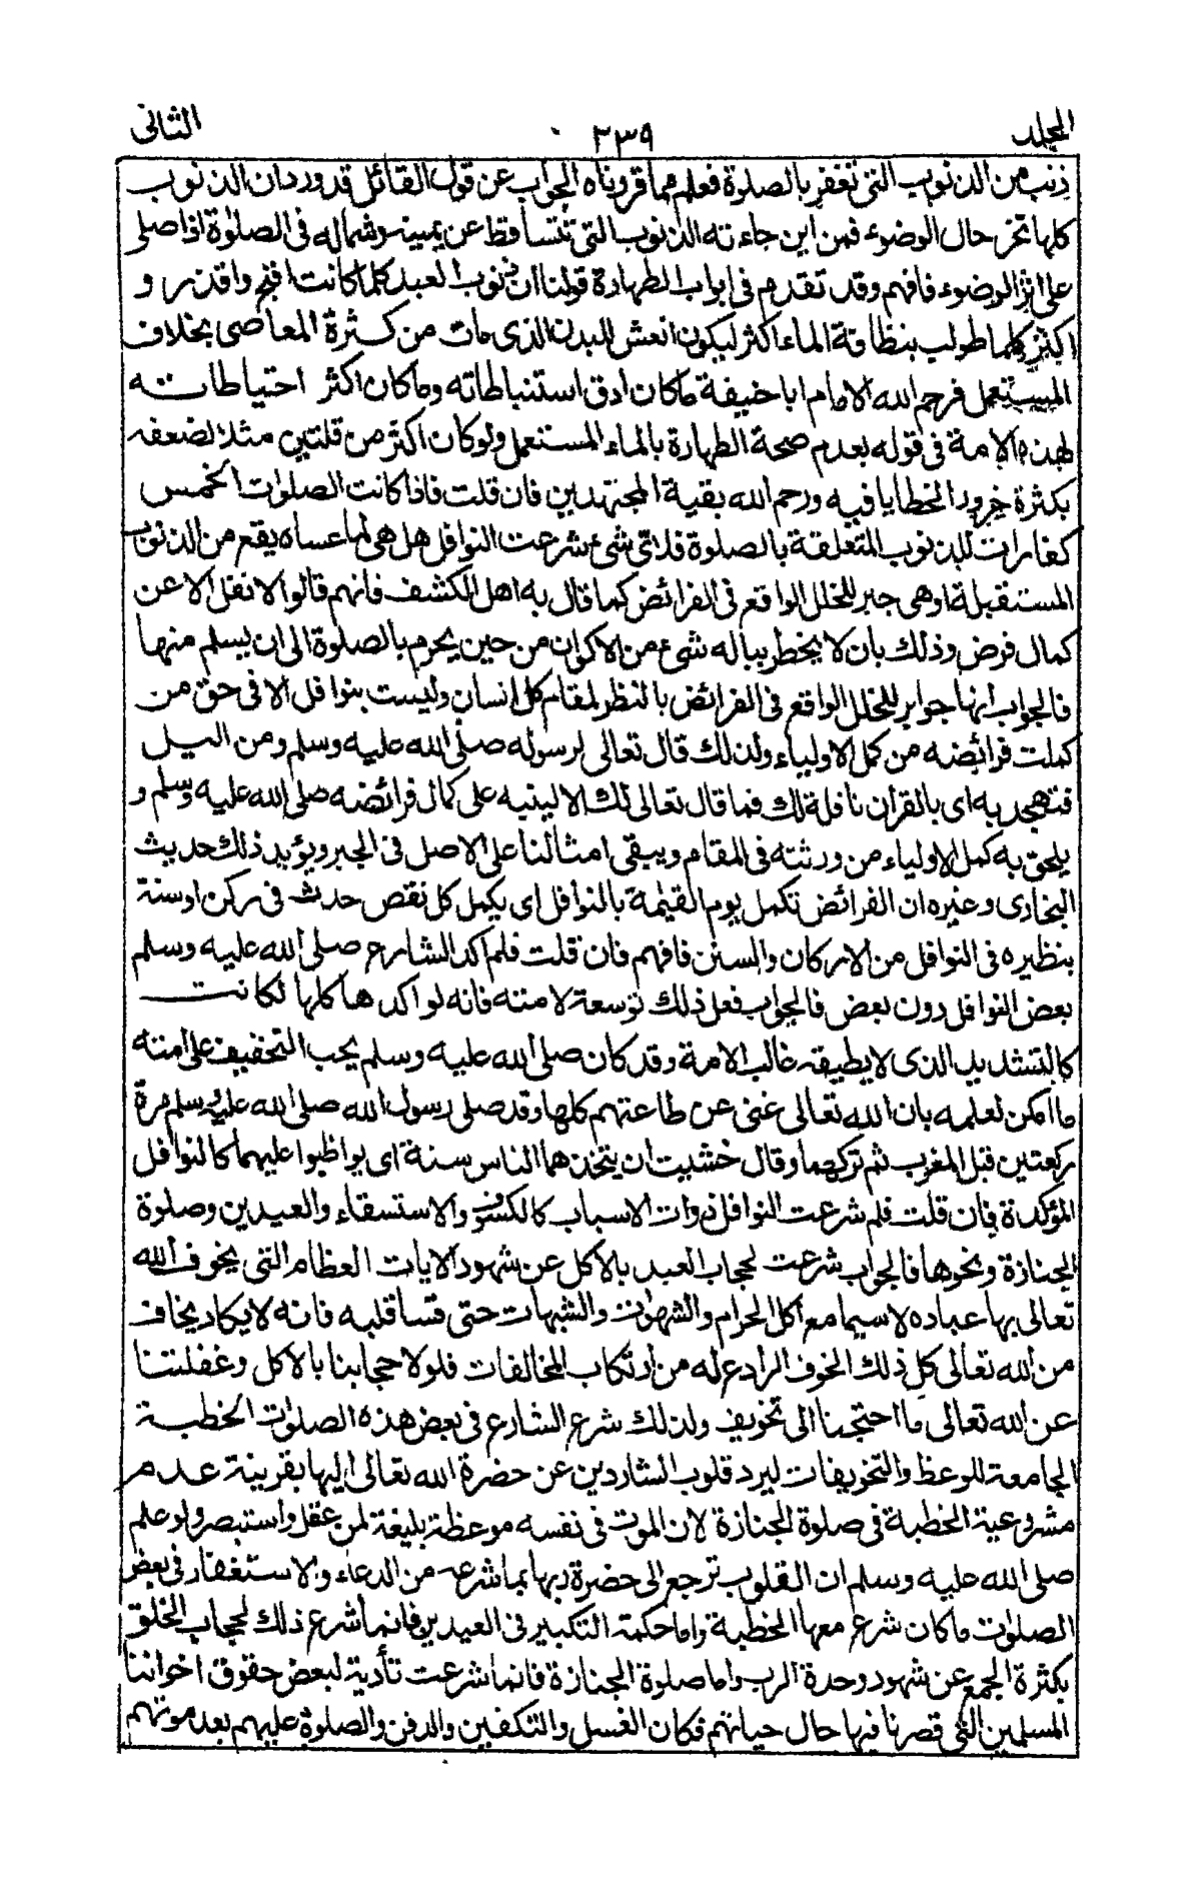 المجلد ٢٣٩ الثانى
ذنب من الذنوب التى تغفر بالصلوة فعلم مما قررناه الجواب عن قول القائل قد ورد ان الذنوب
كلها تخر حال الوضوء فمن اين جاءته الذنوب التى تتساقط عن يمينه وشماله فى الصلوة اذا صلى
على اثر الوضوء فافهم وقد تقدم فى ابواب الطهارة قولنا ان ذنوب العبد كلما كانت اقبح واقذر و
اكثر كلما طولب بنظافة الماء اكثر ليكون انعش للبدن الذى مات من كثرة المعاصى بخلاف
المستعمل فرحم الله الامام ابا حنيفة ما كان ادق استنباطاته وما كان اكثر احتياطاته
لهذه الامة فى قوله بعدم صحة الطهارة بالماء المستعمل ولو كان اكثر من قلتين مثلا لضعفه
بكثرة خرور الخطايا فيه ورحم الله بقية المجتهدين فان قلت فاذا كانت الصلوات الخمس
كفارات للذنوب المتعلقة بالصلوة فلاى شىء شرعت النوافل هل هى لما عساه يقع من الذنوب
المستقبلة او هى جبر للخلل الواقع فى الفرائض كما قال به اهل الكشف فانهم قالوا لا نفل الا عن
كمال فرض وذلك بان لا يخطر بباله شىء من الاكوان من حين يحرم بالصلوة الى ان يسلم منها
فالجواب انها جوابر للخلل الواقع فى الفرائض بالنظر لمقام كل انسان وليست بنوافل الا فى حق من
كملت فرائضه من كمل الاولياء ولذلك قال تعالى لرسوله صلى الله عليه وسلم ومن اليل
فتهجد به اى بالقرآن نافلة لك فما قال تعالى لك الا لينبه على كمال فرائضه صلى الله عليه وسلم و
يلحق به كمل الاولياء من ورثته فى المقام ويبقى امثالنا على الاصل فى الجبر ويؤيد ذلك حديث
البخارى وغيره ان الفرائض تكمل يوم القيمة بالنوافل اى يكمل كل نقص حدث فى ركن او سنة
بنظيره فى النوافل من الاركان والسنن فافهم فان قلت فلم اكد الشارع صلى الله عليه وسلم
بعض النوافل دون بعض فالجواب فعل ذلك توسعة لامته فانه لو اكدها كلها لكانت
كالتشديد الذى لا يطيقه غالب الامة وقد كان صلى الله عليه وسلم يحب التخفيف على امته
ما امكن لعلمه بان الله تعالى غنى عن طاعتهم كلها وقد صلى رسول الله صلى الله عليه وسلم مرة
ركعتين قبل المغرب ثم تركهما وقال خشيت ان يتخذهما الناس سنة اى يواظبوا عليهما كالنوافل
المؤكدة فان قلت فلم شرعت النوافل ذوات الاسباب كالكسوف والاستسقاء والعيدين وصلوة
الجنازة ونحوها فالجواب شرعت لحجاب العبد بالاكل عن شهود الايات العظام التى يخوف الله
تعالى بها عباده لا سيما مع اكل الحرام والشهوات والشبهات حتى قسا قلبه فانه لا يكاد يخاف
من الله تعالى كل ذلك الخوف الرادع له من ارتكاب المخالفات فلولا حجابنا بالاكل وغفلتنا
عن الله تعالى ما احتجنا الى تخويف ولذلك شرع الشارع فى بعض هذه الصلوات الخطبة
الجامعة للوعظ والتخويفات ليرد قلوب الشاردين عن حضرة الله تعالى اليها بقرينة عدم
مشروعية الخطبة فى صلوة الجنازة لان الموت فى نفسه موعظة بليغة لمن عقل واستبصر ولو علم
صلى الله عليه وسلم ان القلوب ترجع الى حضرة ربها بما شرعه من الدعاء والاستغفار فى بعض
الصلوات ما كان شرع معها الخطبة واما حكمة التكبير فى العيدين فانما شرع ذلك لحجاب الخلق
بكثرة الجمع عن شهود وحدة الرب واما صلوة الجنازة فانما شرعت تأدية لبعض حقوق اخواننا
المسلمين التى قصرنا فيها حال حياتهم فكان الغسل والتكفين والدفن والصلوة عليهم بعد موتهم